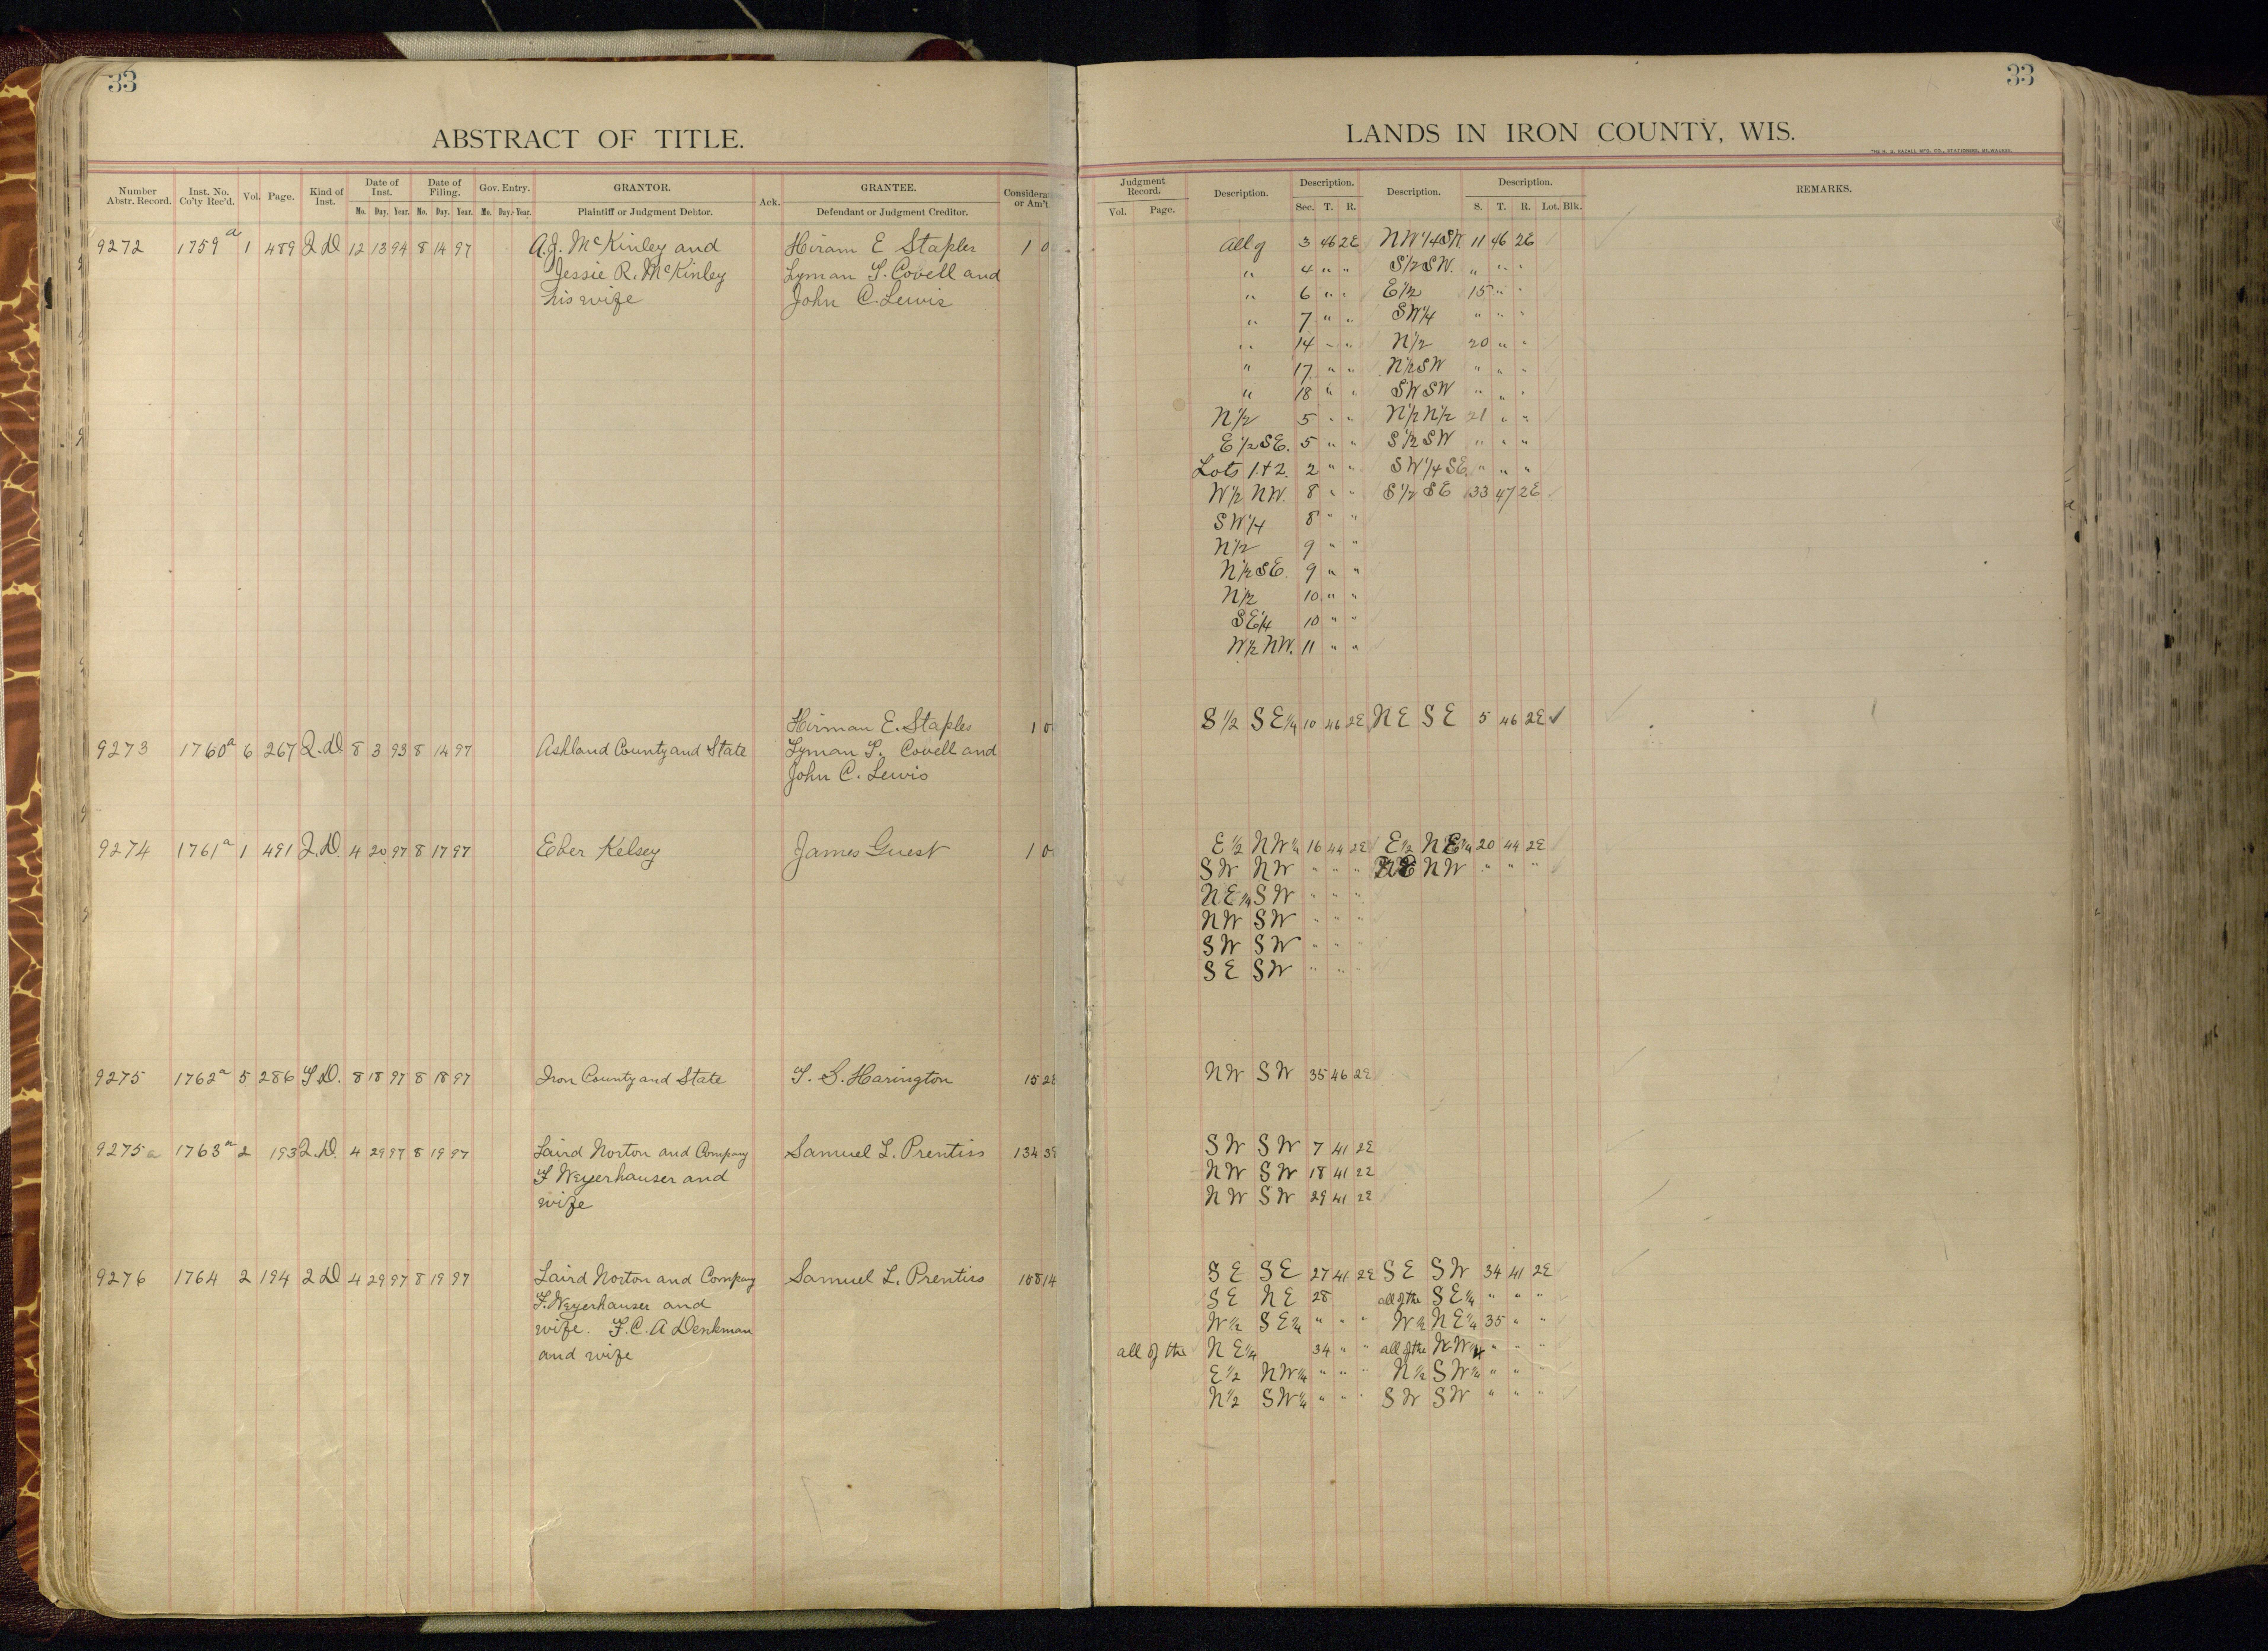 33
ABSTRACT OF TITLE.
Number Abstr. Record. Inst. No. Co'ty Rec'd. Vol. Page. Kind of Inst. Date of Inst. Mo. Day. Year. Date of Filing. Mo. Day. Year. Gov. Entry. Mo. Day. Year. GRANTOR. Plaintiff or Judgment Debtor. Ack. GRANTEE. Defendant or Judgment Creditor. or Am't
9272 1759 a 1 489 Q D 12 13 94 8 14 97 A.J. McKinley and Hiram E Staples 1 0
Jessie R. McKinley Lyman T. Covell and
his wife John C. Lewis
Hirman E. Staples 1 0
9273 1760 a 6 267 Q.D 8 3 93 8 14 97 Ashland County and State Lyman T. Covell and
John C. Lewis
9274 1761 a 1 491 Q.D. 4 20 97 8 17 97 Eber Kelsey James Guest 1 0
9275 1762 a 5 286 T.D. 8 18 97 8 18 97 Iron County and State T. S. Harington 15 28
9275a 1763 a 2 193 Q.D. 4 29 97 8 19 97 Laird Norton and Company Samuel L. Prentiss 134 39
F Weyerhauser and
wife
9276 1764 2 194 Q D 4 29 97 8 19 97 Laird Norton and Company Samuel L. Prentiss 14
F. Weyerhauser and
wife. F. C. A Denkman
and wife
33
LANDS IN IRON COUNTY, WIS.
Judgment Record. Vol. Page. Description. Description. Sec. T. R. Description. Description. S. T. R. Lot. Blk. REMARKS.
All of 3 46 2E NW1/4SW 11 46 2E
" 4 " " S1/2SW. " " "
" 6 " " E1/2 15 " "
" 7 " " SW1/4 " " "
" 14 " " N1/2 20 " "
" 17 " " N1/2SW " " "
" 18 " " SWSW " " "
N1/2 5 " " N1/2N1/2 21 " "
E1/2SE. 5 " " S1/2SW " " "
Lots 1+2. 2 " " SW1/4SE " " "
W1/2 NW. 8 " " S1/2 SE 33 47 2E
SW1/4 8 " "
N1/2 9 " "
N1/2SE. 9 " "
N1/2 10 " "
SE1/4 10 " "
W1/2 NW. 11 " "
S 1/2 SE1/4 10 46 2E NE SE 5 46 2E ✓
E 1/2 NW 1/4 16 44 2E E 1/2 NE1/4 20 44 2E
SW NW " " " NE NW " " "
NE1/4 SW " " "
NW SW " " "
SW SW " " "
SE SW " " "
NW SW 35 46 2E
SW SW 7 41 2E
NW SW 18 41 2E
NW SW 29 41 2E
SE SE 27 41 2E SE SW 34 41 2E
SE NE 28 all of the SE1/4 " " "
W1/2 SE1/4 " " " W1/2 NE1/4 35 " "
all of the NE1/4 34 " " all of the NW1/4 " " "
E1/2 NW1/4 " " " N1/2 SW1/4 " " "
N1/2 SW1/4 " " " SW SW " " "